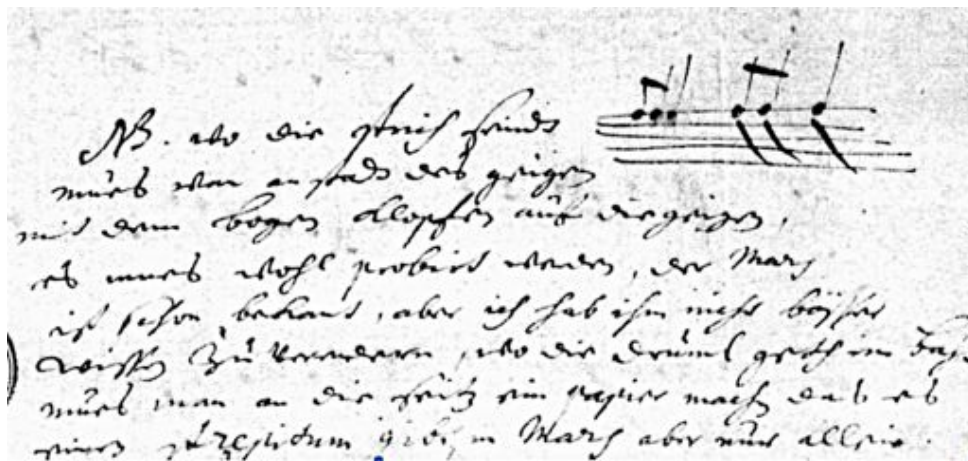 NB. wo die strich seindt
mues man anstadt des geigen
mit dem bogen klopfen auf die geigen,
es mues wohl probirt werden, der Mars
ist schon bekant, aber ich hab ihn nicht bösser
wissen zu verendern, wo die drumel geth im Bass
mues man an die seiten ein papier machen das es
einen strepitum gibt, in Mars aber nur allein.